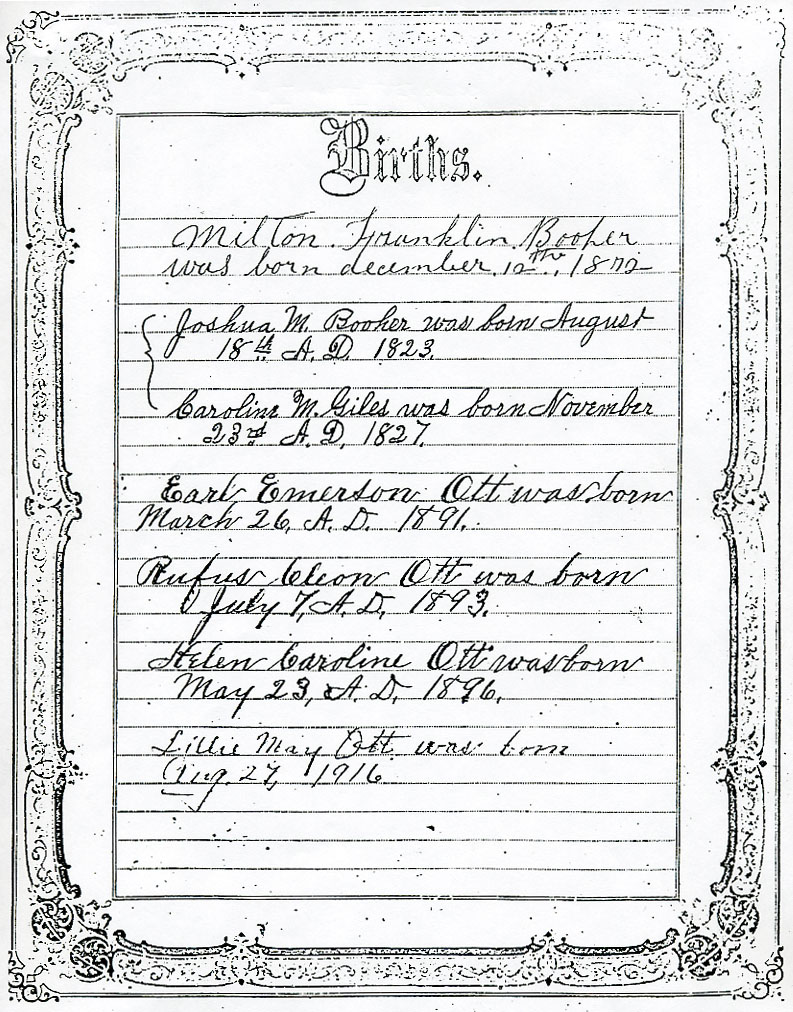 Births.
Milton. Franklin. Booher
was born december. 12th., 1872
Joshua M. Booher was born August
18th A. D. 1823.
Caroline M. Giles was born November
23rd A. D. 1827.
Earl Emerson Ott was born
March 26, A. D. 1891.
Rufus Cleon Ott was born
July 7, A. D. 1893.
Helen Caroline Ott was born
May 23, A. D. 1896.
Lillie May Ott was born
Aug. 27, 1916